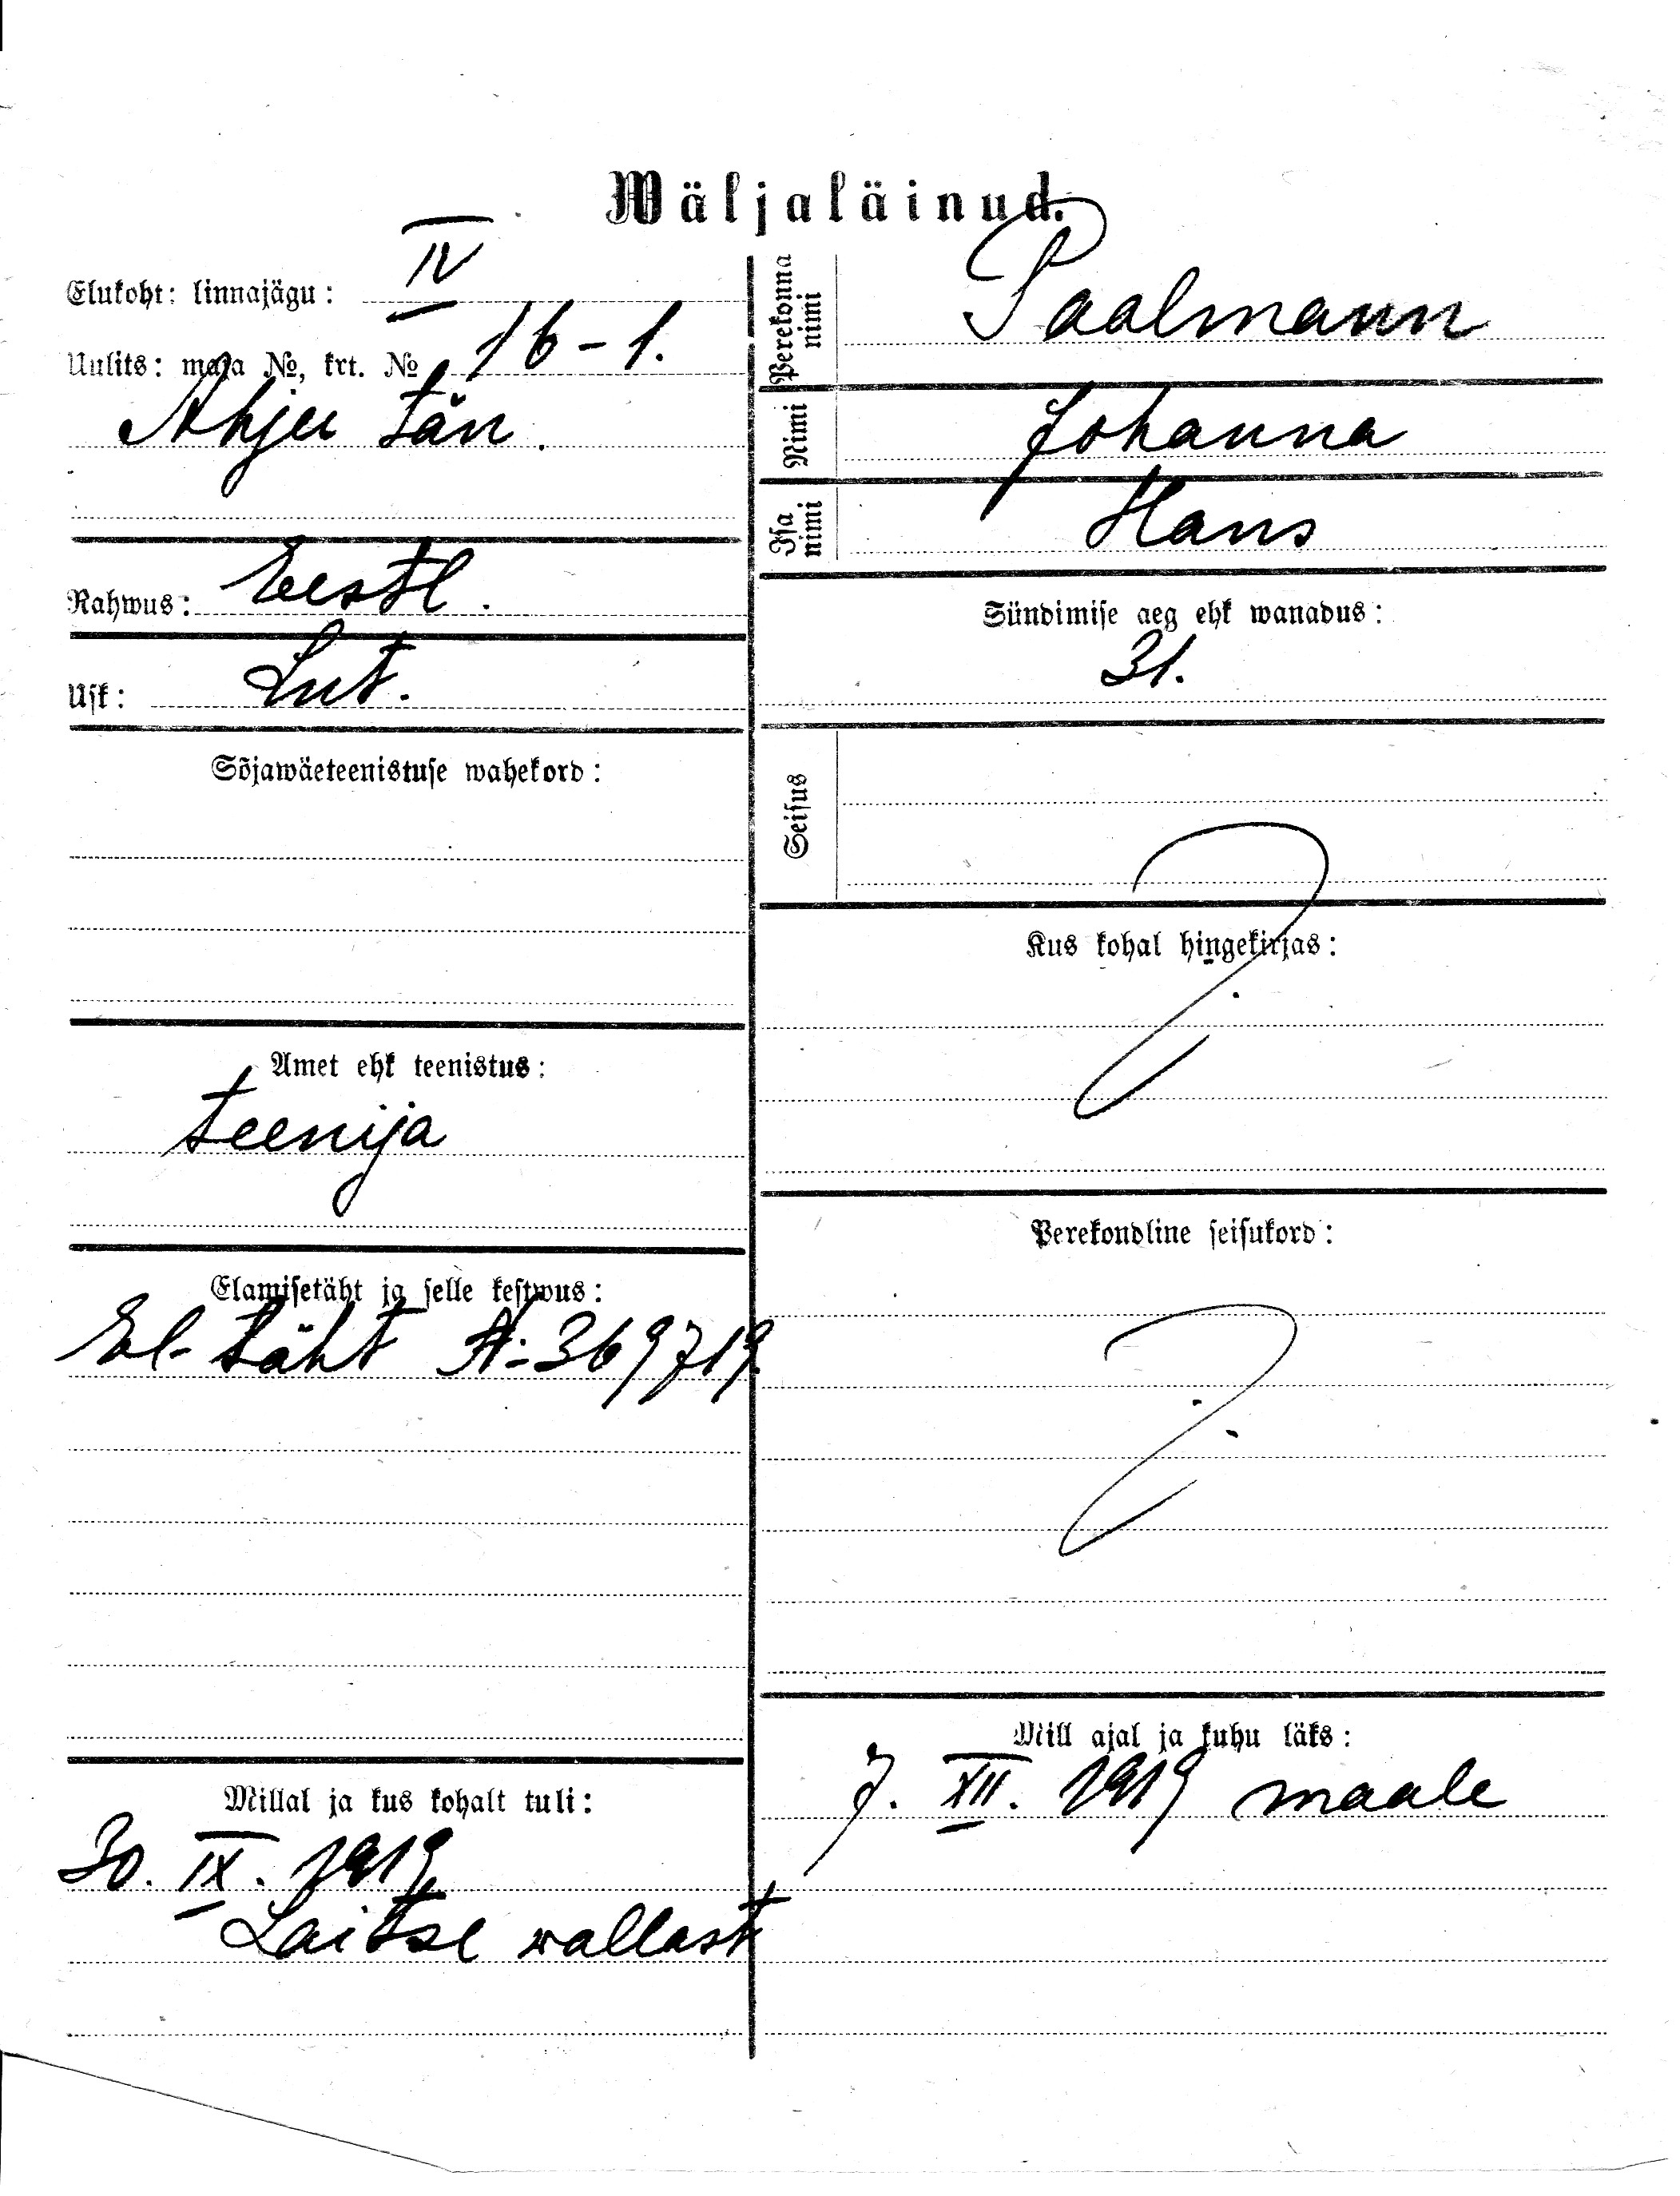 Wäljaläinud.
Elukoht: linnajägu: IV
Uulits: maja №, krt. № 16-1.
Ahju tän.
Rahwus: Eestl.
Usk: Lut.
Sõjawäeteenistuse wahekord:
Amet ehk teenistus:
teenija
Elamisetäht ja selle kestwus:
El-täht A: 369719.
Millal ja kus kohalt tuli:
30. IX. 1919
Laitse wallast
Perekonna nimi Paalmann
Nimi Johanna
Isa nimi Hans
Sündimise aeg ehk wanadus:
31.
Seisus
Kus kohal hingekirjas:
?
Perekondline seisukord:
?
Mill ajal ja kuhu läks:
7. XII. 1919 maale